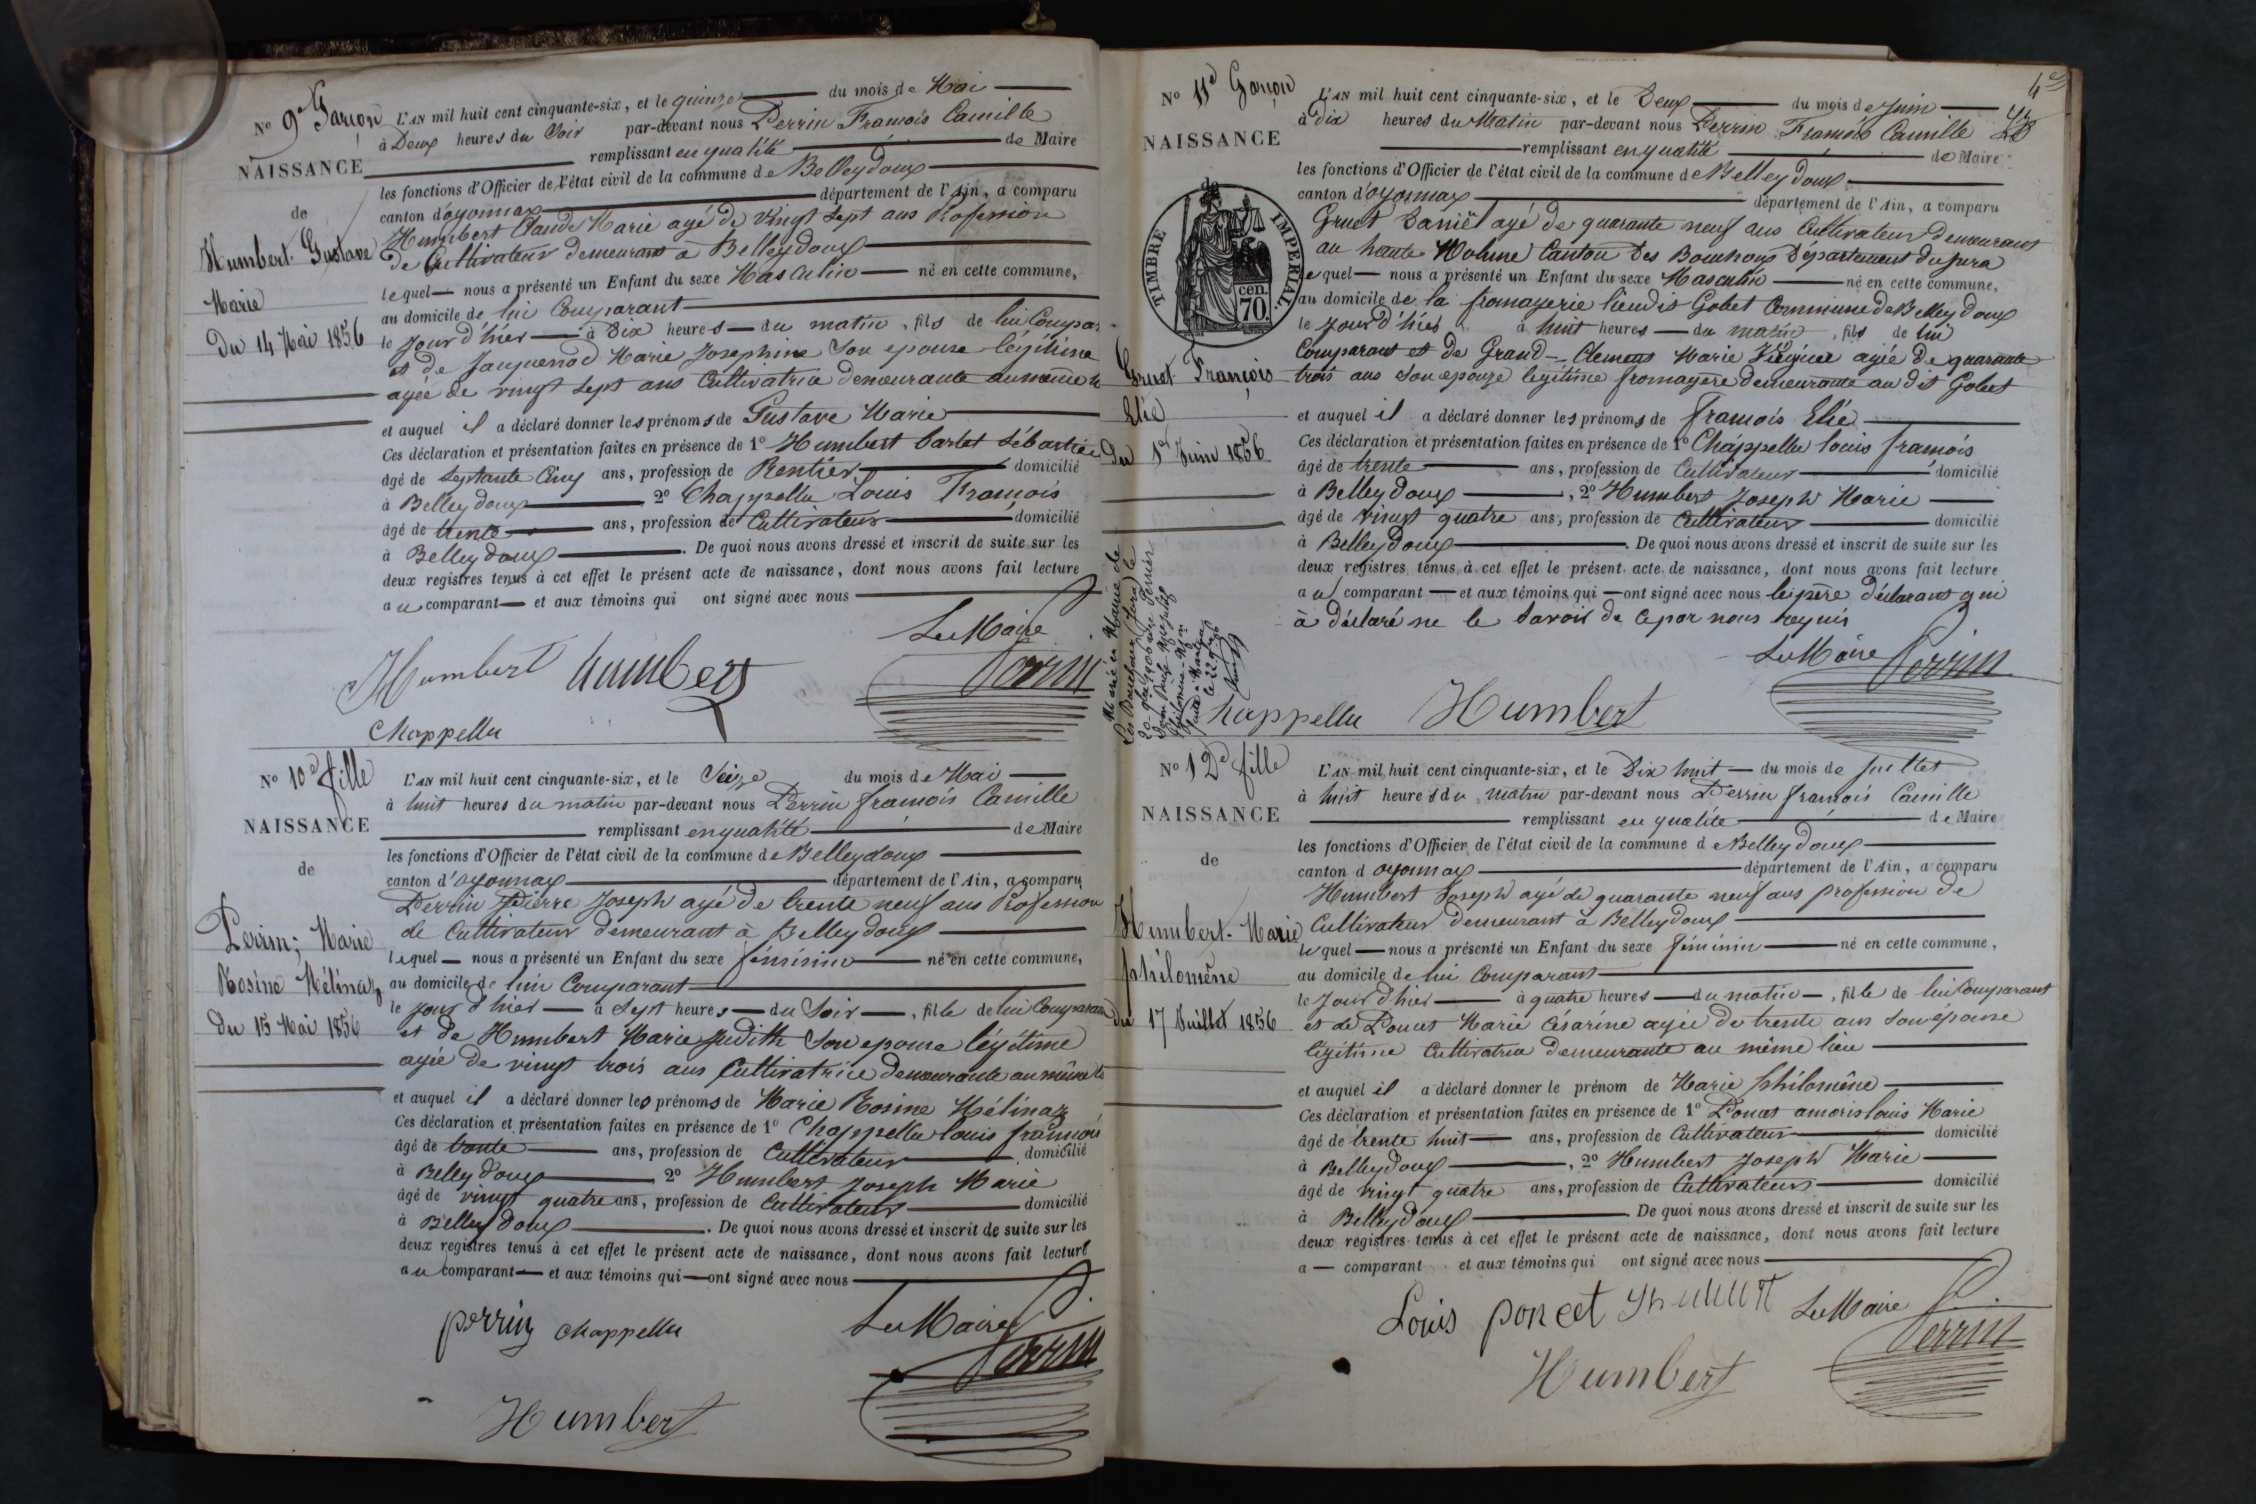 No 9e Garçon
NAISSANCE
de
Humbert Gustave
Marie
Du 14 Mai 1856
L'AN mil huit cent cinquante-six, et le quinze du mois de Mai
à Deux heures du Soir par-devant nous Perrin François Camille
remplissant en qualité de Maire
les fonctions d'Officier de l'état civil de la commune de Belleydoux
canton d'oyonnax département de l'Ain, a comparu
Humbert Claude Marie agé de vingt sept ans Profession
de Cultivateur demeurant à Belleydoux
lequel nous a présenté un Enfant du sexe Masculin né en cette commune,
au domicile de lui Comparant
le jour d'hier à Dix heures du matin, fils de lui Compar
et de Marie Josephine Son epouse légitime
agée de vingt sept ans Cultivatrice demeurante au même
et auquel il a déclaré donner les prénoms de Gustave Marie
Ces déclaration et présentation faites en présence de 1º Humbert barlet Sébastien
âgé de Septante Cinq ans, profession de Rentier domicilié
à Belleydoux 2º Chappellu Louis François
âgé de trente ans, profession de Cultivateur domicilié
à Belleydoux. De quoi nous avons dressé et inscrit de suite sur les
deux registres tenus à cet effet le présent acte de naissance, dont nous avons fait lecture
au comparant et aux témoins qui ont signé avec nous
Le Maire
Humbert humbert Perrin
Chappellu
No 10e fille
NAISSANCE
de
Perrin, Marie
Rosine Mélinaz
Du 15 Mai 1856
L'AN mil huit cent cinquante-six, et le Seize du mois de Mai
à huit heures du matin par-devant nous Perrin françois Camille
remplissant en qualité de Maire
les fonctions d'Officier de l'état civil de la commune de Belleydoux
canton d'oyonnax département de l'Ain, a comparu
Perrin Pierre Joseph agé de trente neuf ans Profession
de Cultivateur demeurant à Belleydoux
lequel nous a présenté un Enfant du sexe féminin né en cette commune,
au domicile de lui Comparant
le jour d'hier à Sept heures du Soir, fille de lui Comparant
et de Humbert Marie Judith Son epouse légitime
agée de vingt trois ans Cultivatrice demeurante au même
et auquel il a déclaré donner les prénoms de Marie Rosine Mélinaz
Ces déclaration et présentation faites en présence de 1º Chappellu louis françois
âgé de trente ans, profession de Cultivateur domicilié
à Belleydoux 2º Humbert Joseph Marie
âgé de vingt quatre ans, profession de Cultivateur domicilié
à Belleydoux. De quoi nous avons dressé et inscrit de suite sur les
deux registres tenus à cet effet le présent acte de naissance, dont nous avons fait lecture
au comparant et aux témoins qui ont signé avec nous
perrin Chappellu Le Maire
Perrin
Humbert
4e
No 11e Garçon
NAISSANCE
de
TIMBRE IMPERIAL.
70 cen.
Gruet François
Elie
du 1er Juin 1856
L'AN mil huit cent cinquante-six, et le Deux du mois de Juin
à dix heures du Matin par-devant nous Perrin François Camille
remplissant en qualité de Maire
les fonctions d'Officier de l'état civil de la commune de Belleydoux
canton d'oyonnax département de l'Ain, a comparu
Gruet Daniel agé de quarante neuf ans Cultivateur demeurant
au haute Molune Canton Des Bouchoux Département du jura
lequel nous a présenté un Enfant du sexe Masculin né en cette commune,
au domicile de la fromagerie lieudit Gobet Commune de Belleydoux
le jour d'hier à huit heures du matin, fils de lui
Comparant et de Grand-Clement Marie agée de quarante
trois ans Son epouze legitime fromagere demeurante au dit Gobet
et auquel il a déclaré donner les prénoms de françois Elie
Ces déclaration et présentation faites en présence de 1º Chappellu louis françois
âgé de trente ans, profession de Cultivateur domicilié
à Belleydoux, 2º Humbert Joseph Marie
âgé de vingt quatre ans, profession de Cultivateur domicilié
à Belleydoux. De quoi nous avons dressé et inscrit de suite sur les
deux registres tenus à cet effet le présent acte de naissance, dont nous avons fait lecture
au comparant et aux témoins qui ont signé avec nous le père déclarant qui
à déclaré ne le Savoir de ce par nous requis
Le Maire Perrin
Chappellu Humbert
Marié en Mairie de
Les Bouchoux (Jura) le
No 12e fille
NAISSANCE
de
Humbert. Marie
philomène
du 17 Juillet 1856
L'AN mil huit cent cinquante-six, et le Dix huit du mois de juillet
à huit heures du matin par-devant nous Perrin françois Camille
remplissant en qualité de Maire
les fonctions d'Officier de l'état civil de la commune d Belleydoux
canton d oyonnax département de l'Ain, a comparu
Humbert Joseph agé de quarante neuf ans profession de
Cultivateur demeurant à Belleydoux
lequel nous a présenté un Enfant du sexe féminin né en cette commune,
au domicile de lui Comparant
le jour d'hier à quatre heures du matin, fille de lui Comparant
et de Poncet Marie Césarine agée de trente ans Son epouse
légitime Cultivatrice demeurante au même lieu
et auquel il a déclaré donner le prénom de Marie philomène
Ces déclaration et présentation faites en présence de 1º Poncet amoris louis Marie
âgé de trente huit ans, profession de Cultivateur domicilié
à Belleydoux, 2º Humbert Joseph Marie
âgé de vingt quatre ans, profession de Cultivateur domicilié
à Belleydoux De quoi nous avons dressé et inscrit de suite sur les
deux registres tenus à cet effet le présent acte de naissance, dont nous avons fait lecture
a comparant et aux témoins qui ont signé avec nous
Louis poncet Le Maire
Perrin
Humbert